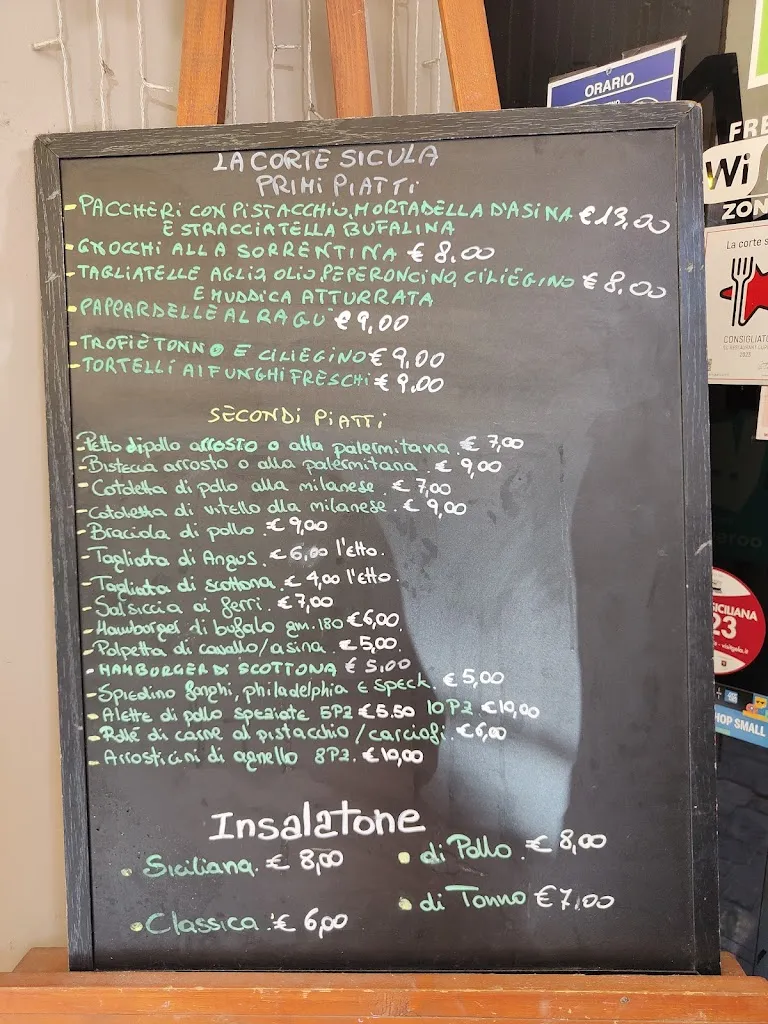 ORARIO
FRE
Wi
ZON
LA CORTE SICULA
PRIMI PIATTI
- PACCHERI CON PISTACCHIO, MORTADELLA D'ASINA € 13,00
E STRACCIATELLA BUFALINA
- GNOCCHI ALLA SORRENTINA € 8,00
- TAGLIATELLE AGLIO, OLIO, PEPERONCINO, CILIEGINO € 8,00
E MUDDICA ATTURRATA
- PAPPARDELLE AL RAGU' € 9,00
- TROFIE TONNO E CILIEGINO € 9,00
- TORTELLI AI FUNGHI FRESCHI € 9,00
SECONDI PIATTI
- Petto di pollo arrosto o alla palermitana. € 7,00
- Bistecca arrosto o alla palermitana. € 9,00
- Cotoletta di pollo alla milanese. € 7,00
- Cotoletta di vitello alla milanese. € 9,00
- Braciola di pollo. € 9,00
- Tagliata di Angus. € 6,00 l'etto.
- Tagliata di scottona. € 4,00 l'etto.
- Salsiccia ai ferri. € 7,00
- Hamburger di bufalo gm. 180 € 6,00.
- Polpetta di cavallo/asina. € 5,00
- HAMBURGER DI SCOTTONA € 5,00
- Spiedino funghi, philadelphia e speck. € 5,00
- Alette di pollo speziate 5PZ € 5.50 10PZ € 10,00
- Rollé di carne al pistacchio/carciofi. € 6,00
- Arrosticini di agnello 8PZ. € 10,00
Insalatone
• Siciliana. € 8,00
• di Pollo. € 8,00
• Classica. € 6,00
• di Tonno € 7,00
La corte s
CONSIGLIATO
2023
SICILIANA
23
HOP SMALL